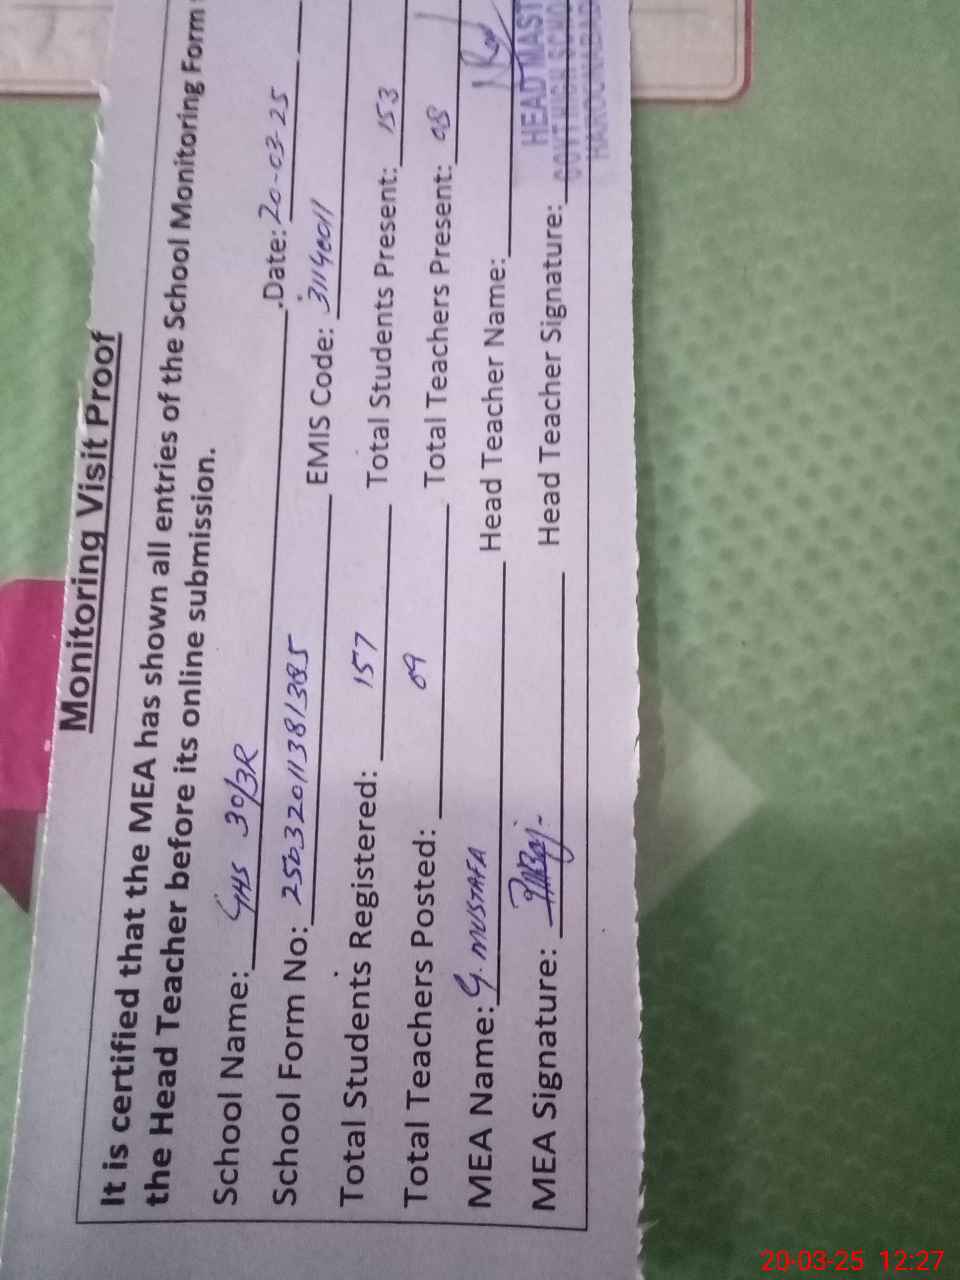 Monitoring Visit Proof
It is certified that the MEA has shown all entries of the School Monitoring Form
the Head Teacher before its online submission.
School Name: GHS 30/3R .Date: 20-03-25
School Form No: 25032011381385 EMIS Code: 31140011
Total Students Registered: 157 Total Students Present: 153
Total Teachers Posted: 09 Total Teachers Present: 08
MEA Name: G. MUSTAFA Head Teacher Name:
MEA Signature: Head Teacher Signature:
HEAD MAST
GOVT HIGH SCHO
HAROONABAD
20-03-25 12:27